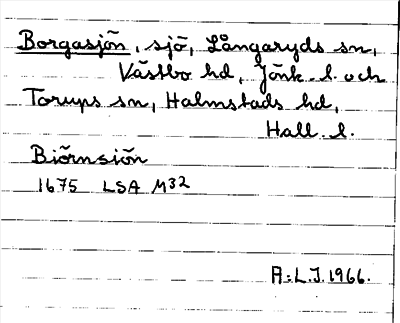 Borgasjön, sjö, Långaryds sn,
Västbo hd, Jönk. l. och
Torups sn, Halmstads hd,
Hall. l.
Biörnsiön
1675 LSA M32
A:L.J.1966.